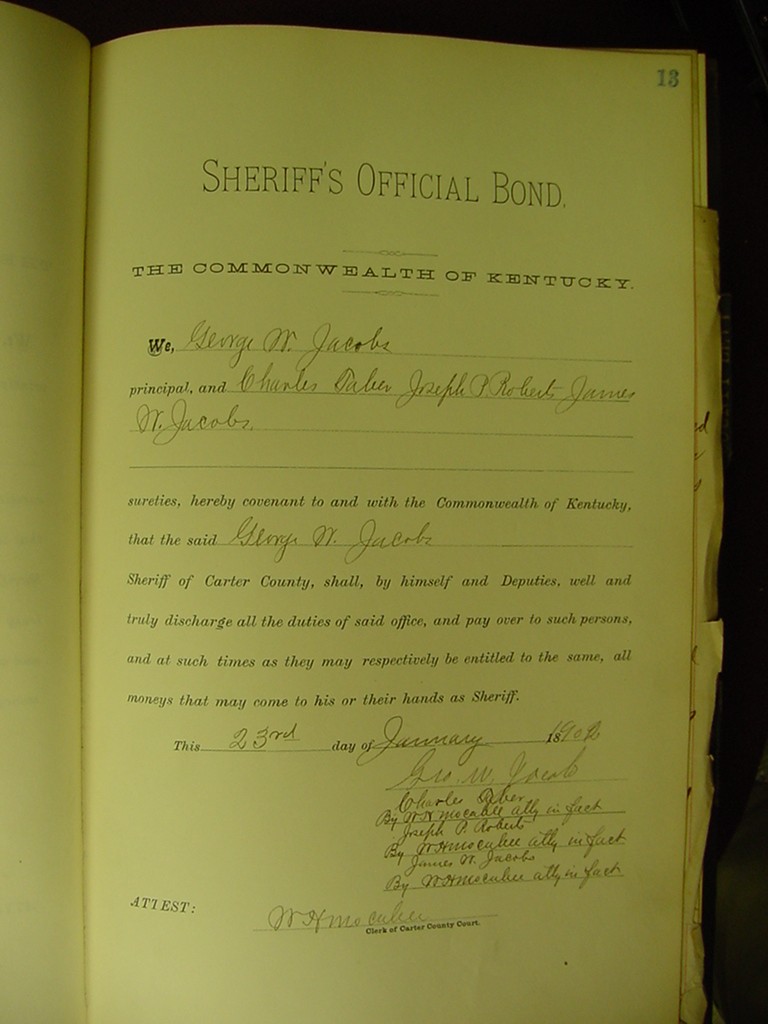 13
SHERIFF'S OFFICIAL BOND.
THE COMMONWEALTH OF KENTUCKY.
We, George W. Jacobs
principal, and Charles Taber Joseph P. Roberts James
W. Jacobs.
sureties, hereby covenant to and with the Commonwealth of Kentucky,
that the said George W. Jacobs
Sheriff of Carter County, shall, by himself and Deputies, well and
truly discharge all the duties of said office, and pay over to such persons,
and at such times as they may respectively be entitled to the same, all
moneys that may come to his or their hands as Sheriff.
This 23rd day of January 1902
Geo. W. Jacobs
Charles Taber
By W H Mocabee atty in fact
Joseph P. Roberts
By W H Mocabee atty in fact
James W. Jacobs
By W H Mocabee atty in fact
ATTEST: W H Mocabee
Clerk of Carter County Court.